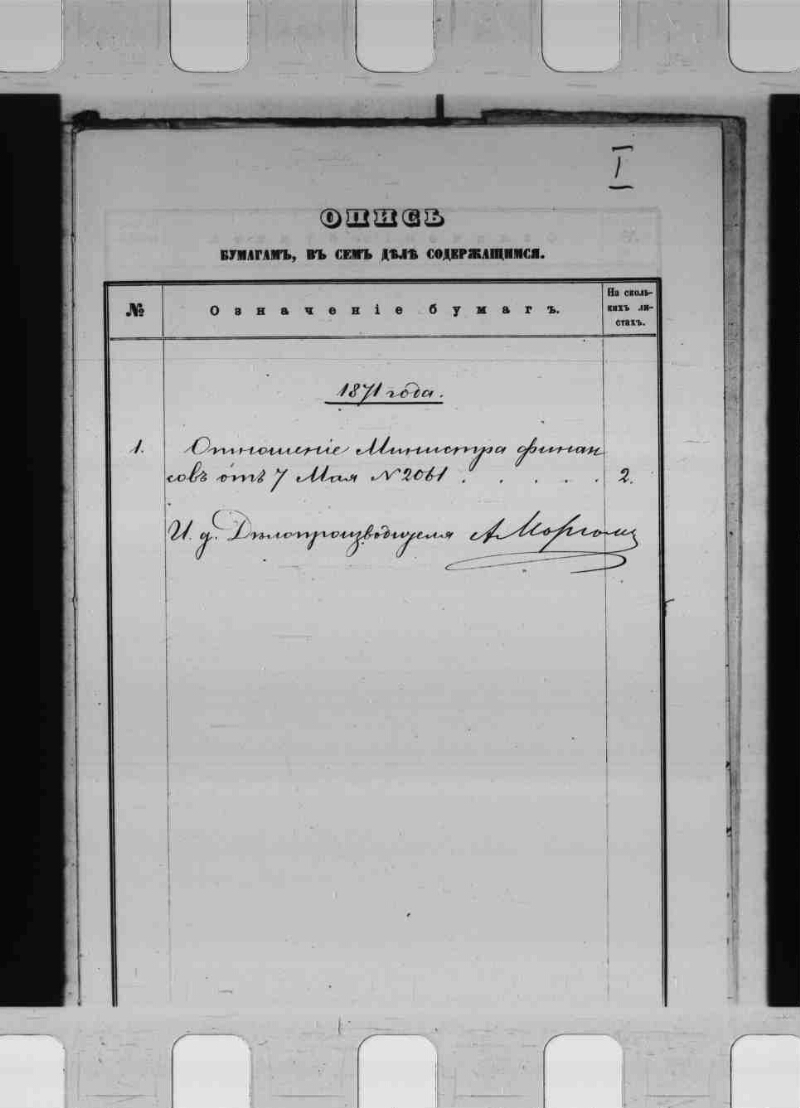 I
ОПИСЬ
БУМАГАМЪ, ВЪ СЕМЪ ДѢЛѢ СОДЕРЖАЩИМСЯ.
№
Означеніе бумагъ.
На сколь-
кихъ ли-
стахъ.
1871 года.
1. Отношеніе Министра финан
совъ отъ 7 Мая N 2061 . . . . . 2.
И. д. Дѣлопроизводителя А